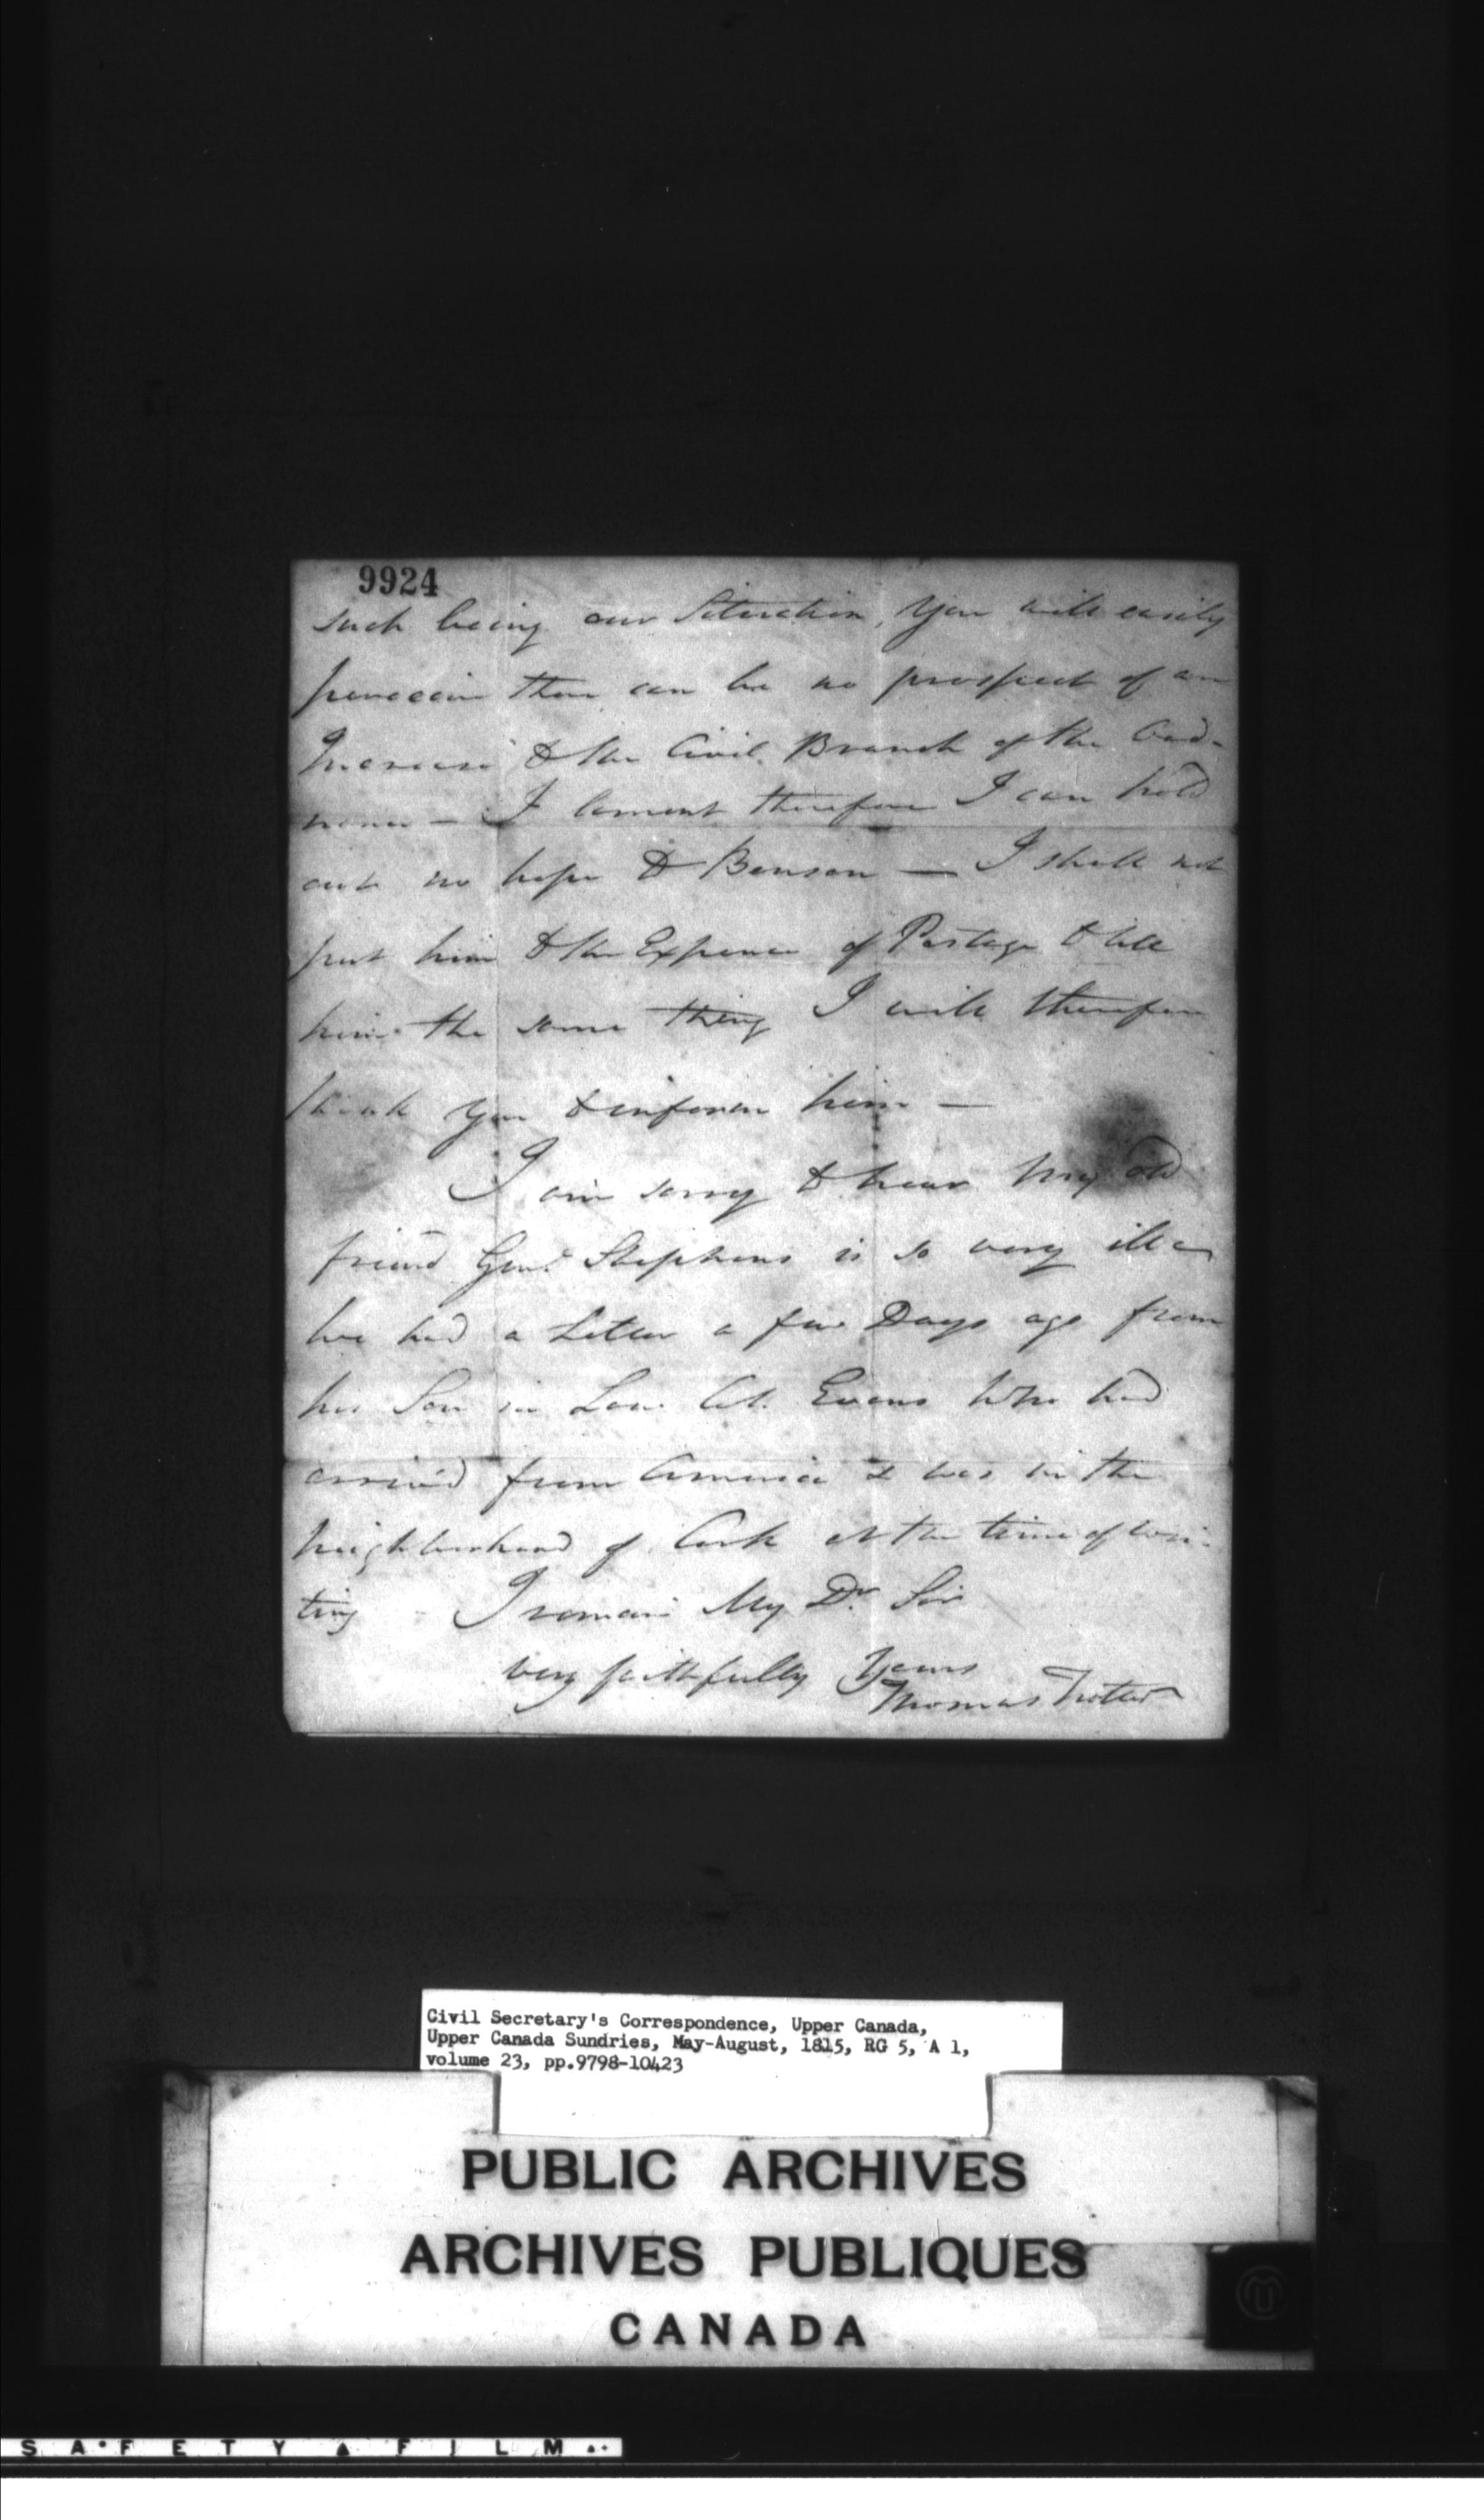 9924
such being our Situation, you will easily
perceive there can be no prospect of an
Increase to the Civil Branch of the Ord-
nance — I lament therefore I can hold
out no hope to Benson — I shall not
put him to the Expence of Postage to tell
him the same thing I will therefore
thank you to inform him —
I am sorry to hear my old
friend Genl Stephens is so very ill
We had a Letter a few Days ago from
his Son in Law Col. Evans who had
arrived from America & was in the
neighbourhood of Cork at the time of wri-
ting I remain My Dr Sir
very faithfully Yours
Thomas Trotter
Civil Secretary's Correspondence, Upper Canada,
Upper Canada Sundries, May-August, 1815, RG 5, A 1,
volume 23, pp.9798-10423
PUBLIC ARCHIVES
ARCHIVES PUBLIQUES
CANADA
SAFETY FILM